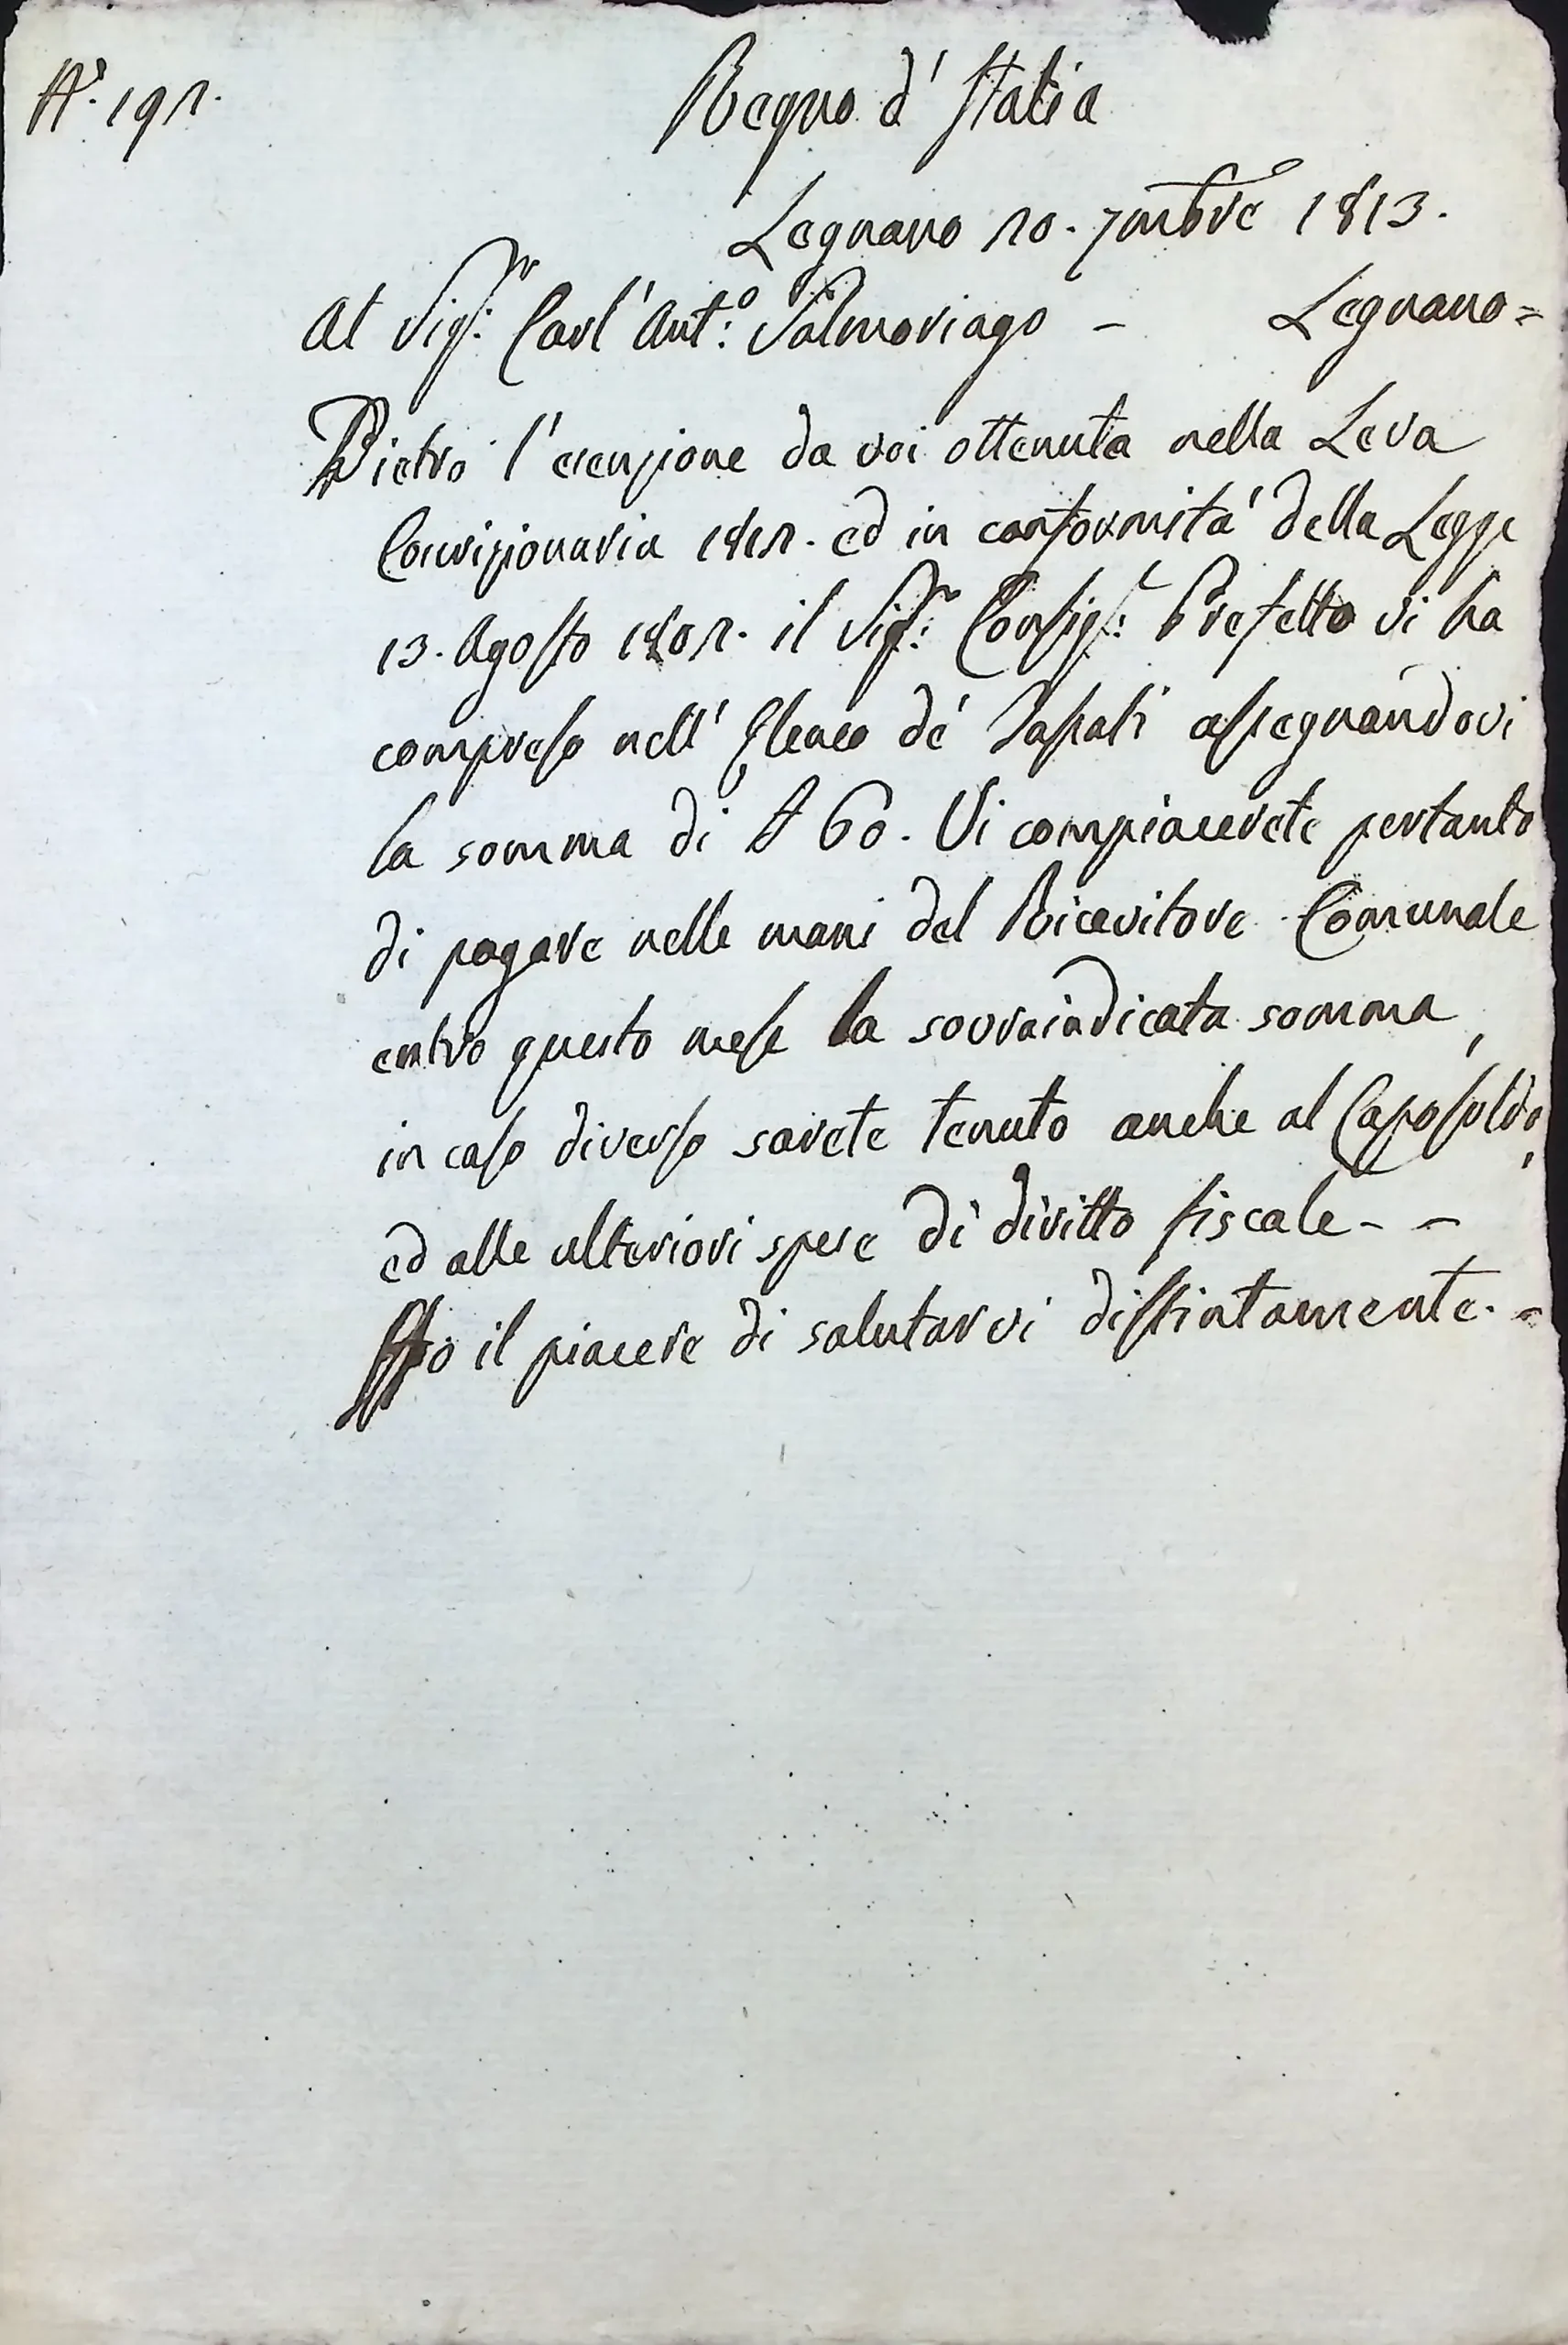 N.º 192.
Regno d'Italia
Legnano 20. 7mbre 1813.
Al Sig.r Carl'Ant.o Salmoriago – Legnano =
Dietro l'esenzione da voi ottenuta nella Leva
Coscrizionaria 1812. ed in conformità della Legge
13. Agosto 1802. il Sig.r Consig.r Prefetto vi ha
compreso nell'Elenco de' Tassati assegnandovi
la somma di £ 60. Vi compiacerete pertanto
di pagare nelle mani del Ricevitore Comunale
entro questo mese la sovraindicata somma,
in caso diverso sarete tenuto anche al Caposoldo,
ed alle ulteriori spese di diritto fiscale - -
Ho il piacere di salutarvi distintamente. =